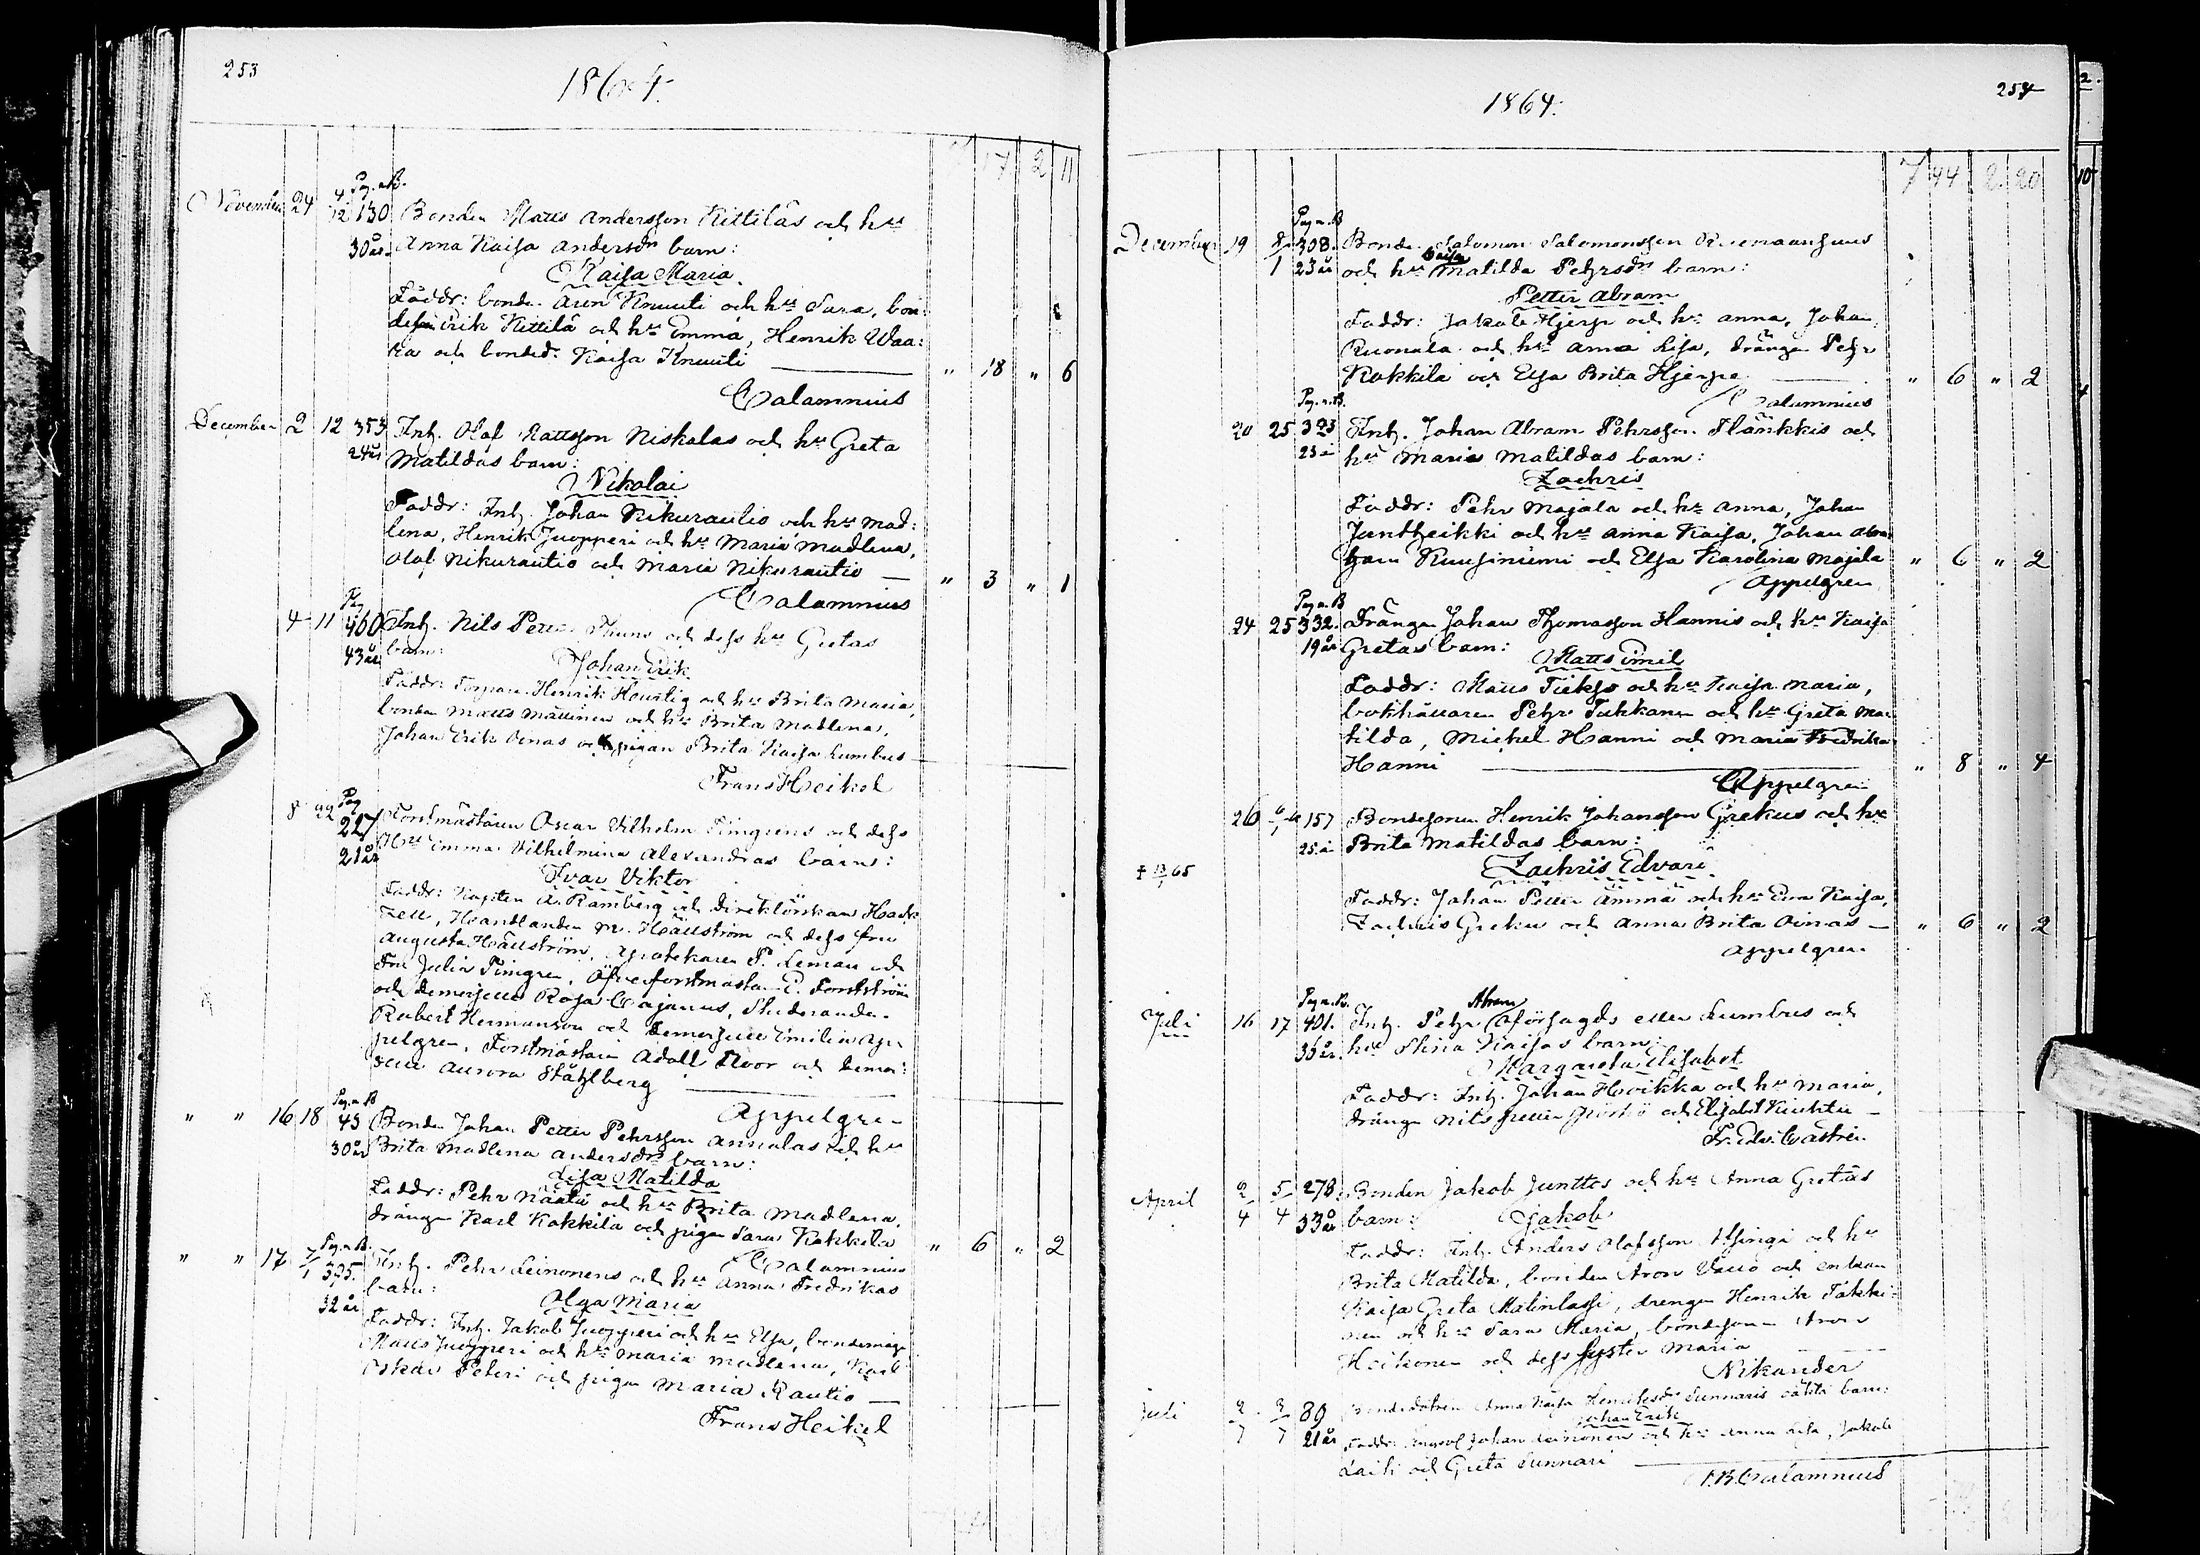 253
1864.
17 2 11
Pag. n. B.
November 24 4/12 130 Bonden Matts Andersson Kittiläs och hs
30 år Anna Kaisa Andersdr barn:
Kaisa Maria
Faddr: bonde Aron Knuuti och hs Sara, bon-
deson Erik Kittilä och hs Emma, Henrik Waa-
ra och bonded. Kaisa Knuuti
" 18 " 6
Calamnius
December 2 12 353 Inh. Olof Mattsson Niskalas och hs Greta
24 år Matildas barn:
Nikolai
Faddr: Inh. Johan Nikurautio och hs Mad-
lena, Henrik Juopperi och hs Maria Madlena,
Olof Nikurautio och Maria Nikurautio — " 3 " 1
Calamnius
Pag
4 11 460 Inh. Nils Petter Thuns och dess hs Gretas
43 år barn:
Johan Erik
Faddr: Torpare Henrik Hourtig och hs Brita Maria,
bonden Matts Mattinen och hs Brita Madlena,
Johan Erik Oinas och pigan Brita Kaisa Lumbus
Frans Heikel
Pag
8 22 227 Forstmästaren Oscar Vilhelm Timgrens och dess
21 år Hru Emma Vilhelmina Alexandras barn:
Ivar Viktor
Faddr: Kapten A. Ramberg och Direktörskan Hack-
zell, Handlanden M. Hällström och dess fru
Augusta Hällström, Apotekaren P. Leman och
Fru Julia Timgren, Öfverforstmästaren E. Forsström
och Demoiselle Rosa Cajanus, Studeranden
Robert Hermanson och Demoiselle Emilia Ap-
pelgren, Forstmästaren Adolf Moor och Demoi-
selle Aurora Ståhlberg
Appelgren
Pag. n. B
" " 16 18 43 Bonden Johan Petter Pehrsson Annalas och hs
30 år Brita Madlena Andersdr barn:
Lisa Matilda
Faddr: Pehr Näätti och hs Brita Madlena,
drängen Karl Kokkila och pigan Sara Kokkila " 6 " 2
Calamnius
Pag. n. B.
" " 17 7/1 375 Inh. Pehr Leinonens och hs Anna Fredrikas
32 år barn:
Olga Maria
Faddr: Inh. Jakob Juopperi och hs Elsa, bondemåg
Matts Juopperi och hs Maria Madlena, Karl
Oskar Peteri och pigan Maria Rautio —
Frans Heikel
254
1864.
7 44 2 20
Pag. n. B
December 19 8/1 308. Bonden Salomon Salomonsson Ruonaansuus
23 år och hs Kaisa Matilda Pehrsdr barn:
Petter Abram
Faddr: Jakob Hjerpe och hs Anna, Johan
Ruonala och hs Anna Lisa, drängen Pehr
Kokkila och Elsa Brita Hjerpe " 6 " 2
Calamnius
Pag. n. B.
20 25 323 Inh. Johan Abram Pehrsson Plänkkis och
23 å hs Maria Matildas barn:
Zachris
Faddr: Pehr Majala och hs Anna, Johan
Junttheikki och hs Anna Kaisa, Johan Abra-
ham Kuusiniemi och Elsa Karolina Majala " 6 " 2
Appelgren
Pag. n. B
24 25 332. Drängen Johan Thomasson Hannis och hs Kaisa
19 år Gretas barn:
Matts Emil
Faddr: Matts Tiekso och hs Kaisa Maria,
bokhållaren Pehr Tukkanen och hs Greta Ma-
tilda, Mickel Hanni och Maria Fredrika
Hanni " 8 " 4
Appelgren
26 6/1 157 Bondesonen Henrik Johansson Grekus och hs
25 å Brita Matildas barn:
† 13/1 65 Zachris Edvard
Faddr: Johan Petter Ämmä och hs Eva Kaisa,
Zachris Greku och Anna Brita Oinas — " 6 " 2
Appelgren
Pag. n. B.
Juli 16 17 401. Inh. Pehr Abram Aförsagds eller Lumbus och
35 år. hs Stina Kaisas barn:
Margareta Elisabet
Faddr: Inh. Johan Hoikka och hs Maria,
drängen Nils Petter och Elisabet
Fr. Edv. Castrén
April 2/4 5/4 278 Bonden Jakob Junttos och hs Anna Gretas
33 år barn: Jakob
Faddr: Inh. Anders Olofsson Hjingi och hs
Brita Matilda, bonden Aron Vaio och enkan
Kaisa Greta Matinlassi, drengen Henrik Takki-
nen och hs Sara Maria, bondesonen Aron
Heikonen och dess syster Maria
Nikander
Juli 2/7 3/7 89 Bondedottren Anna Kaisa Henriksdr Sunnaris oäkta barn:
Johan Erik
21 år Faddr: Johan Leinonen och hs Anna Lisa, Jakob
Laiti och Greta Sunnari
J.B. Calamnius